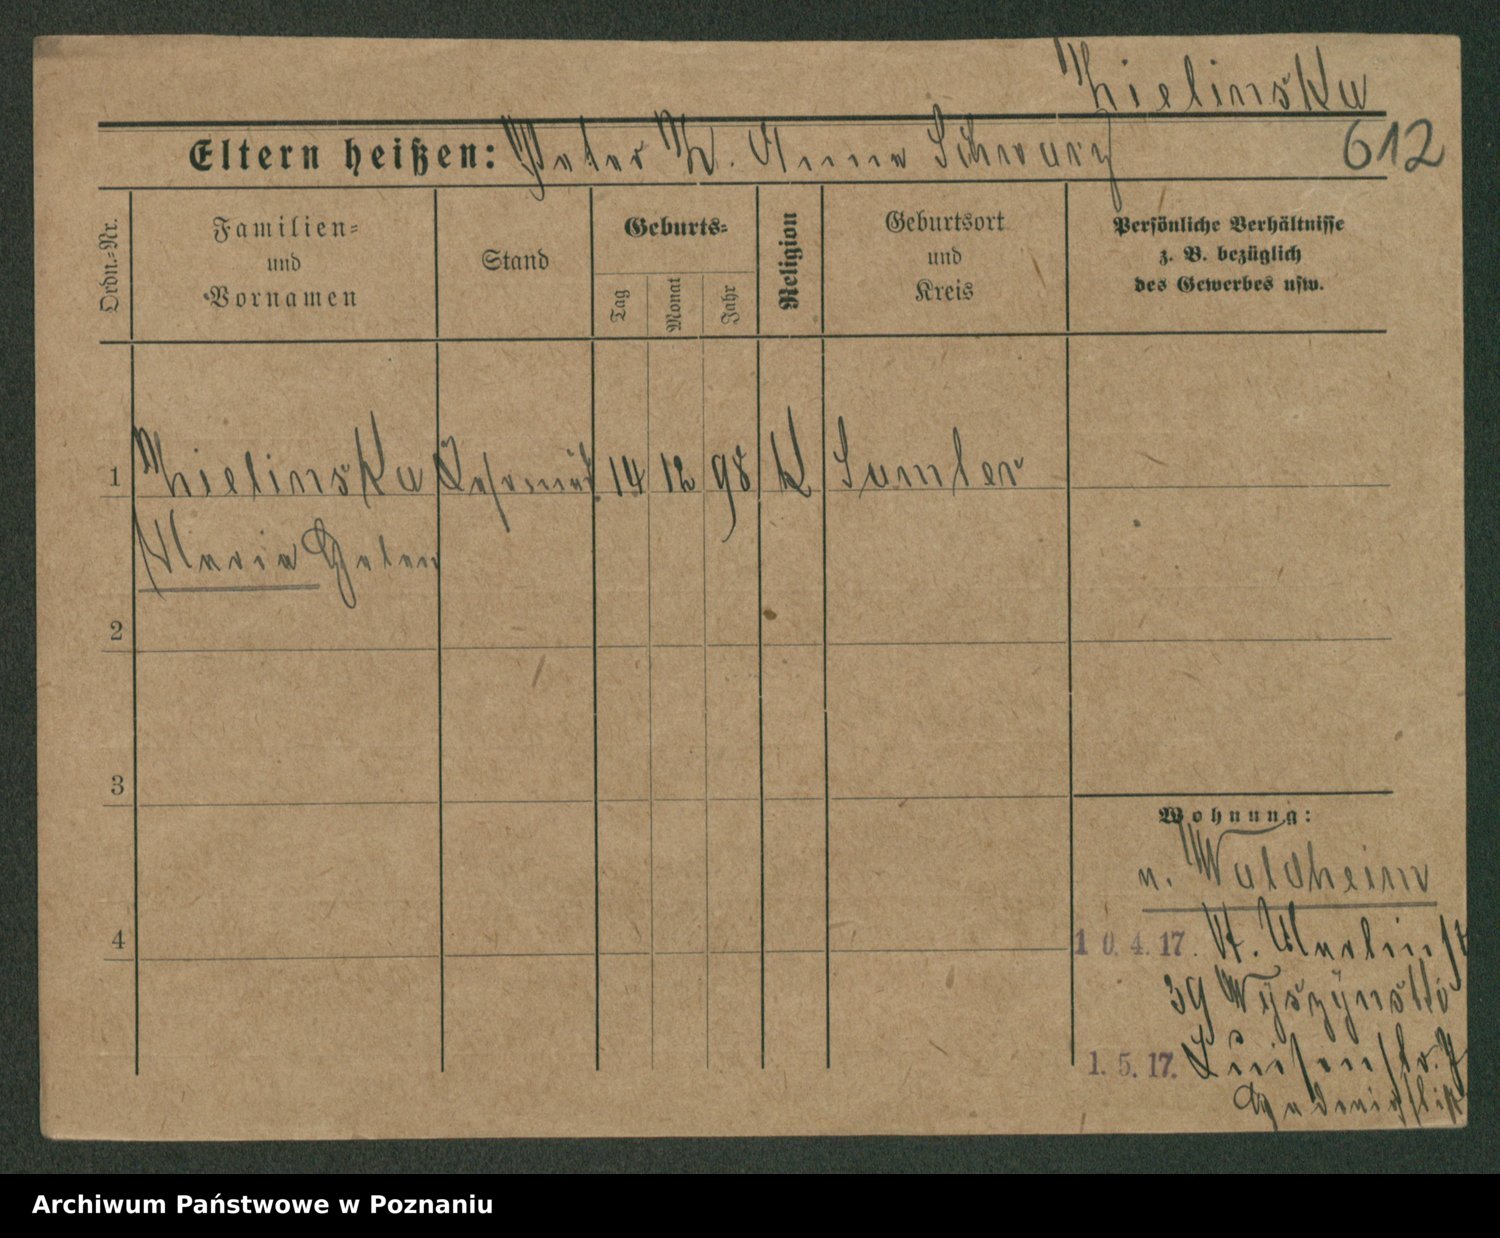 Zielinska
Eltern heißen: Peter Z. Anna Schwarz
612
Ordn.-Nr.
Familien-
und
Vornamen
Stand
Geburts-
Tag
Monat
Jahr
Religion
Geburtsort
und
Kreis
Persönliche Verhältnisse
z. B. bezüglich
des Gewerbes usw.
1 Zielinska 14 12 98 K Samter
Maria Helen
2
3
4
Wohnung:
n. Waldheim
10.4.17. St. Martinstr
39 Wyszynski
1.5.17. Luisenstr.
Archiwum Państwowe w Poznaniu